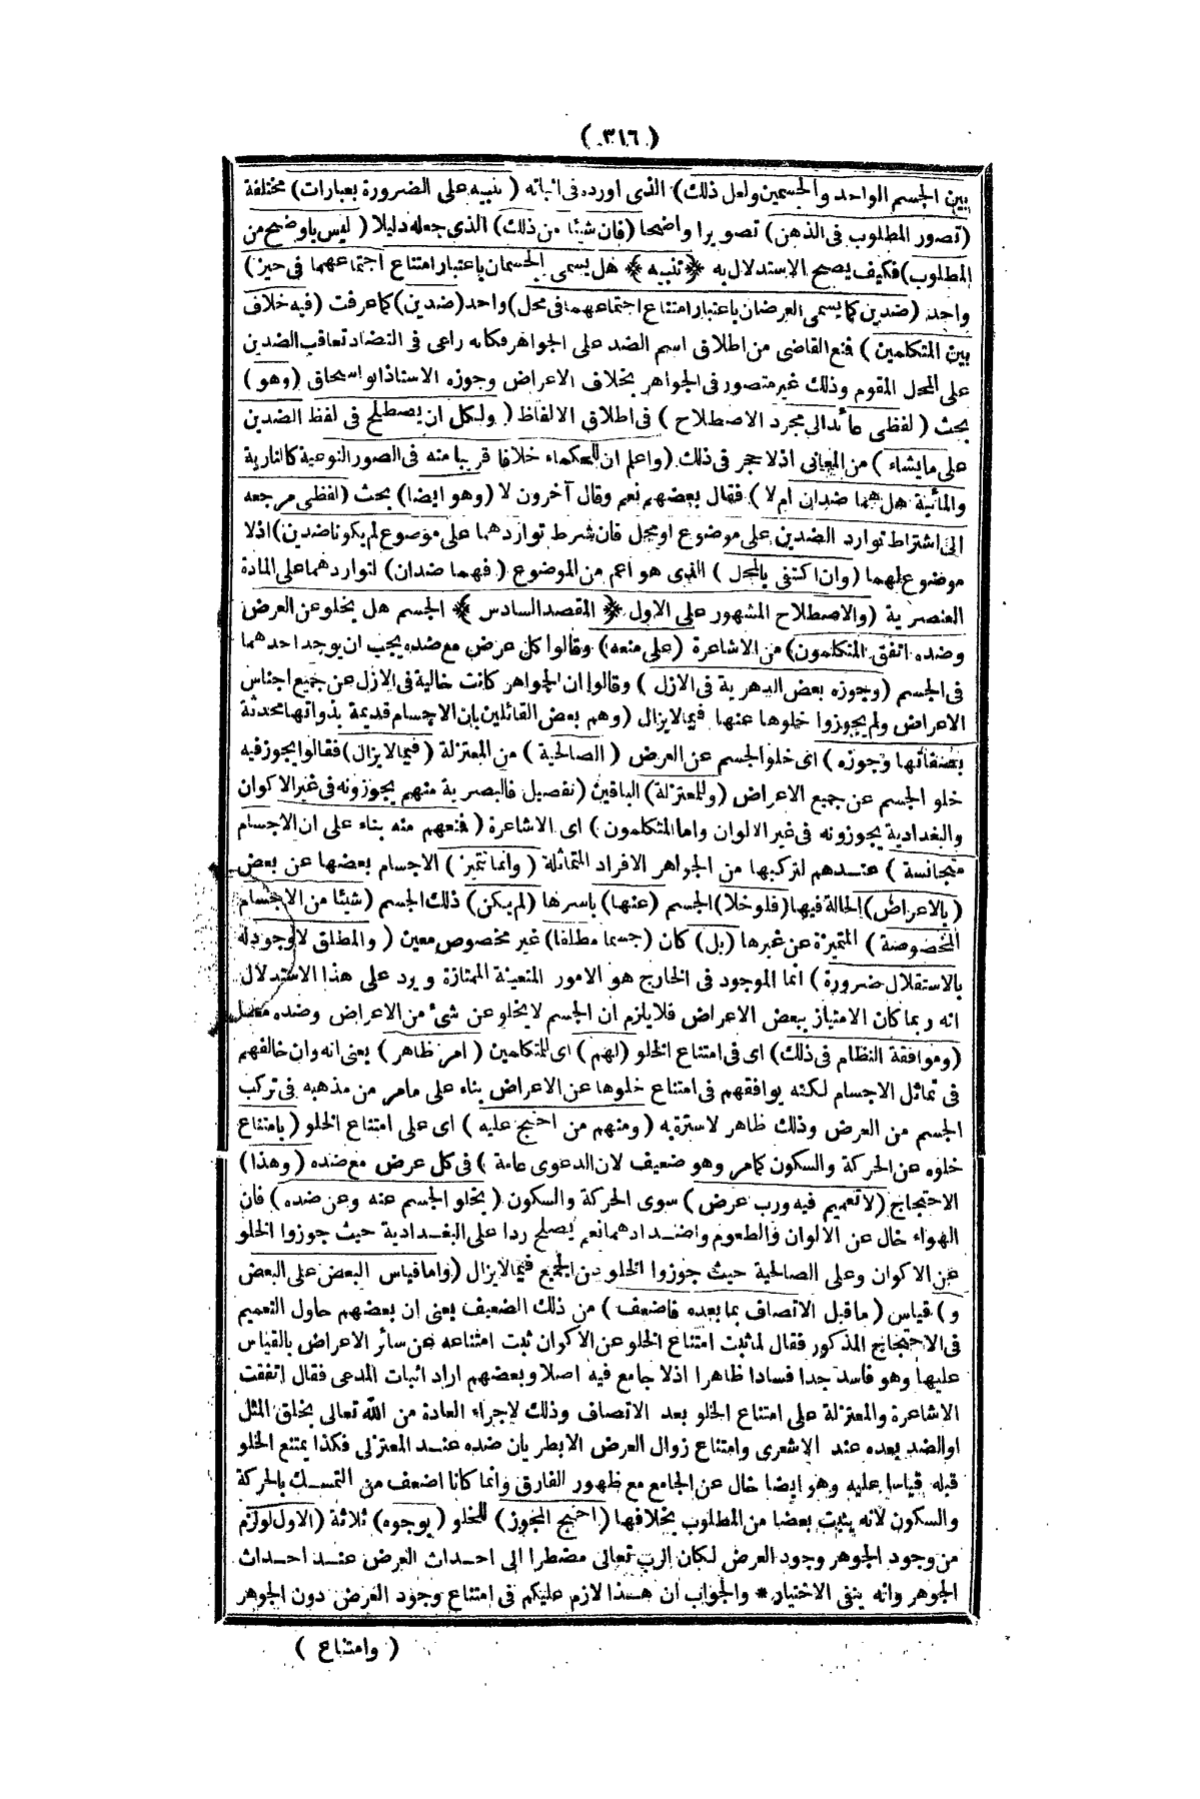 (٣١٦)
بين الجسم الواحد والجسمين ولعل ذلك) الذى اورده فى اثباته (تنبيه على الضرورة بعبارات) مختلفة
(تصور المطلوب فى الذهن) تصويرا واضحا (فان شيئا من ذلك) الذى جعله دليلا (ليس باوضح من
المطلوب) فكيف يصح الاستدلال به ﴿تنبيه﴾ هل يسمى الجسمان باعتبار امتناع اجتماعهما فى حيز)
واحد (ضدين كما يسمى العرضان باعتبار امتناع اجتماعهما فى محل) واحد (ضدين) كما عرفت (فيه خلاف
بين المتكلمين) فمنع القاضى من اطلاق اسم الضد على الجواهر فكانه راعى فى التضاد تعاقب الضدين
على المحل المقوم وذلك غير متصور فى الجواهر بخلاف الاعراض وجوزه الاستاذ ابو اسحاق (وهو)
بحث (لفظى عائد الى مجرد الاصطلاح) فى اطلاق الالفاظ (ولكل ان يصطلح فى لفظ الضدين
على ما يشاء) من المعانى اذلا حجر فى ذلك (واعلم ان للحكماء خلافا قريبا منه فى الصور النوعية كالنارية
والمائية هل هما ضدان ام لا) فقال بعضهم نعم وقال آخرون لا (وهو ايضا) بحث (لفظى مرجعه
الى اشتراط توارد الضدين على موضوع او محل فان شرط تواردهما على موضوع لم يكونا ضدين) اذلا
موضوع لهما (وان اكتفى بالمحل) الذى هو اعم من الموضوع (فهما ضدان) لتواردهما على المادة
العنصرية (والاصطلاح المشهور على الاول ﴿المقصد السادس﴾ الجسم هل يخلو عن العرض
وضده اتفق المتكلمون) من الاشاعرة (على منعه) وقالوا كل عرض مع ضده يجب ان يوجد احدهما
فى الجسم (وجوزه بعض الدهرية فى الازل) وقالوا ان الجواهر كانت خالية فى الازل عن جميع اجناس
الاعراض ولم يجوزوا خلوها عنها فيما لا يزال (وهم بعض القائلين بان الاجسام قديمة بذواتها محدثة
بصفاتها وجوزه) اى خلو الجسم عن العرض (الصالحية) من المعتزلة (فيما لا يزال) فقالوا يجوز فيه
خلو الجسم عن جميع الاعراض (وللمعتزلة) الباقين (تفصيل فالبصرية منهم يجوزونه فى غير الاكوان
والبغدادية يجوزونه فى غير الالوان واما المتكلمون) اى الاشاعرة (فمنعهم منه بناء على ان الاجسام
متجانسة) عندهم لتركبها من الجواهر الافراد المتماثلة (وانما تتميز) الاجسام بعضها عن بعض
(بالاعراض) الحالة فيها (فلو خلا) الجسم (عنها) باسرها (لم يكن) ذلك الجسم (شيئا من الاجسام
المخصوصة) المتميزة عن غيرها (بل) كان (جسما مطلقا) غير مخصوص معين (والمطلق لا وجود له
بالاستقلال ضرورة) انما الموجود فى الخارج هو الامور المتعينة الممتازة ويرد على هذا الاستدلال
انه ربما كان الامتياز ببعض الاعراض فلا يلزم ان الجسم لا يخلو عن شئ من الاعراض وضده معا
(وموافقة النظام فى ذلك) اى فى امتناع الخلو (لهم) اى للمتكلمين (امر ظاهر) يعنى انه وان خالفهم
فى تماثل الاجسام لكنه يوافقهم فى امتناع خلوها عن الاعراض بناء على مامر من مذهبه فى تركب
الجسم من العرض وذلك ظاهر لاسترة به (ومنهم من احتج عليه) اى على امتناع الخلو (بامتناع
خلوه عن الحركة والسكون كمامر وهو ضعيف لان الدعوى عامة) فى كل عرض مع ضده (وهذا)
الاحتجاج (لا تعميم فيه ورب عرض) سوى الحركة والسكون (يخلو الجسم عنه وعن ضده) فان
الهواء خال عن الالوان والطعوم واضدادهما نعم يصلح ردا على البغدادية حيث جوزوا الخلو
عن الاكوان وعلى الصالحية حيث جوزوا الخلو عن الجميع فيما لا يزال (واما قياس البعض على البعض
و) قياس (ما قبل الاتصاف بما بعده فاضعف) من ذلك الضعيف يعنى ان بعضهم حاول التعميم
فى الاحتجاج المذكور فقال لما ثبت امتناع الخلو عن الاكوان ثبت امتناعه عن سائر الاعراض بالقياس
عليها وهو فاسد جدا فسادا ظاهرا اذلا جامع فيه اصلا وبعضهم اراد اثبات المدعى فقال اتفقت
الاشاعرة والمعتزلة على امتناع الخلو بعد الاتصاف وذلك لاجراء العادة من الله تعالى بخلق المثل
او الضد بعده عند الاشعرى وامتناع زوال العرض الا بطريان ضده عند المعتزلى فكذا يمتنع الخلو
قبله قياسا عليه وهو ايضا خال عن الجامع مع ظهور الفارق وانما كانا اضعف من التمسك بالحركة
والسكون لانه يثبت بعضا من المطلوب بخلافها (احتج المجوز) للخلو (بوجوه) ثلاثة (الاول لو لزم
من وجود الجوهر وجود العرض لكان الرب تعالى مضطرا الى احداث العرض عند احداث
الجوهر وانه ينفى الاختيار * والجواب ان هذا لازم عليكم فى امتناع وجود العرض دون الجوهر
(وامتناع)